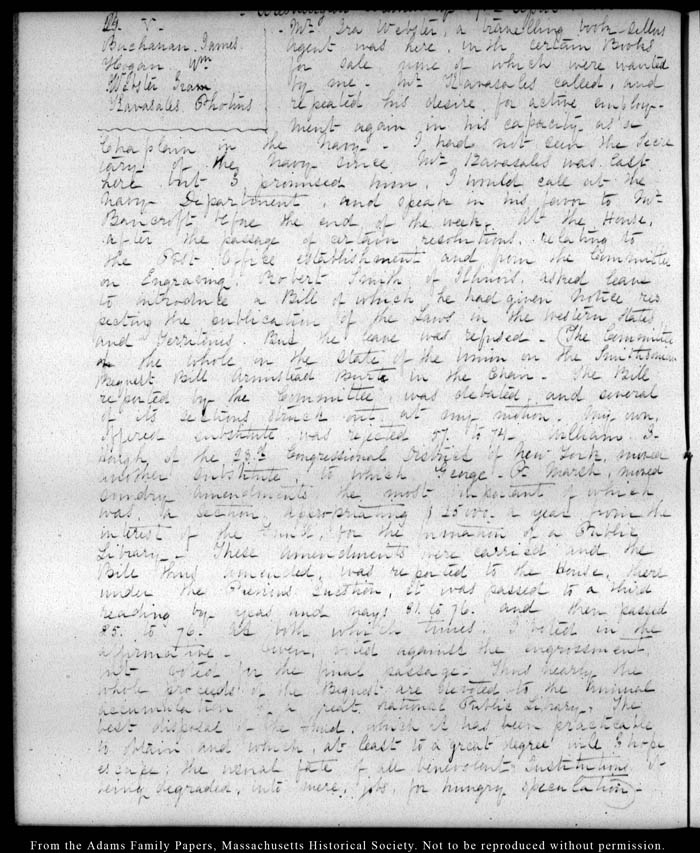 29. V.
Buchanan. James
Hogan. Wm
Webster Iram
Kavasales. Photius
Mr. Ira Webster, a travelling book-seller
agent was here, with certain Books
for sale none of which were wanted
by me. Mr Kavasales called, and
repeated his desire for active employ-
ment again in his capacity as a
Chaplain in the Navy - I had not seen the Secre
tary of the Navy since Mr Kavasales was last
here but I promised him, I would call at the
Navy Department, and speak in his favor to Mr
Bancroft before the end of the week. At the House,
after the passage of certain resolutions, relating to
the Post Office establishment and from the Committee
on Engraving. Robert Smith of Illinois, asked leave
to introduce a Bill of which he had given notice res
pecting the publication of the Laws in the western States
and Territories. But the leave was refused - (The Committee
of the whole on the state of the Union on the Smithsonian
Bequest Bill Armistead Burt in the Chair - The Bill
reported by the Committee, was debated, and several
of its sections struck out, at my motion. My own
offered substitute was rejected 57 to 74. William. J.
Hough of the 23d Congressional District of New York, moved
another substitute, to which George. P. Marsh, moved
sundry amendments the most important of which
was, a section appropriating $ 25000. a year from the
interest of the Fund, for the formation of a Public
Library - These amendments were carried and the
Bill thus amended, was reported to the House, there
under the Previous Question, it was passed to a third
reading by yeas and nays 81. to 76. and then passed
85. to 76. At both which times, I voted in the
affirmative - Owen, voted against the engrossment,
but voted for the final passage - Thus nearly the
whole proceeds of the Bequest are devoted to the annual
accumulation of a great national Public Library. The
best disposal of the Fund, which it has been practicable
to obtain and which, at least to a great degree will I hope
escape, the usual fate of all benevolent Institutions of
being degraded, into mere, jobs, for hungry speculation -
From the Adams Family Papers, Massachusetts Historical Society. Not to be reproduced without permission.